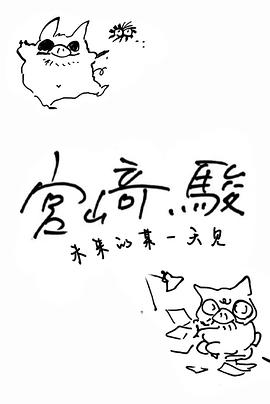 宮﨑駿
未來的某一天見